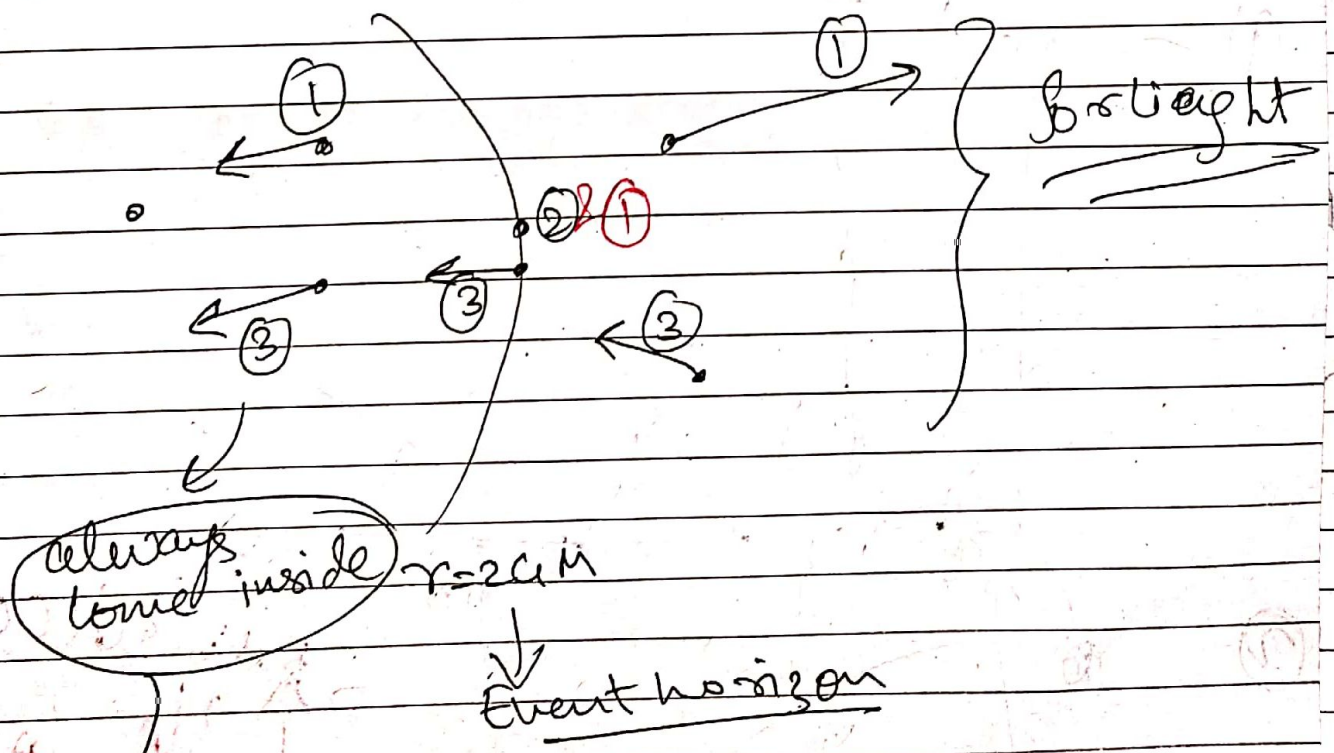 ①
①
for light
②&①
③
③
③
always
come inside
r=2GM
Event horizon